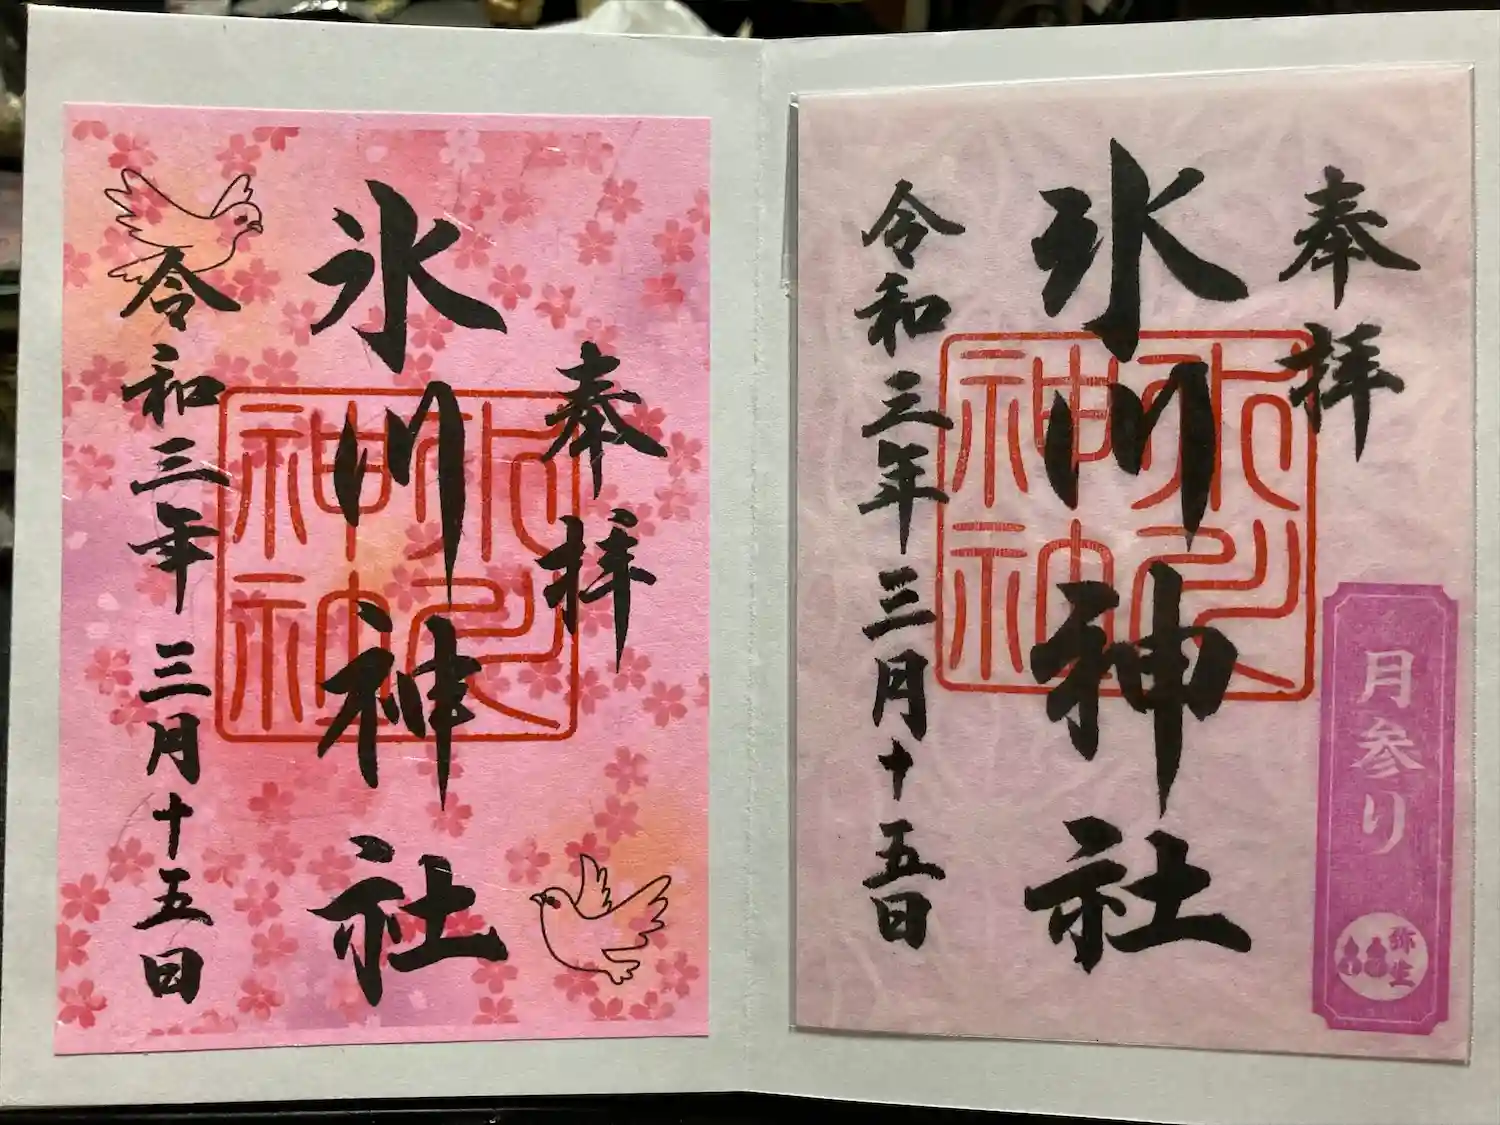 奉拝
氷川神社
令和三年三月十五日
氷川神神
奉拝
氷川神社
令和三年三月十五日
氷川神神
月参り
弥生